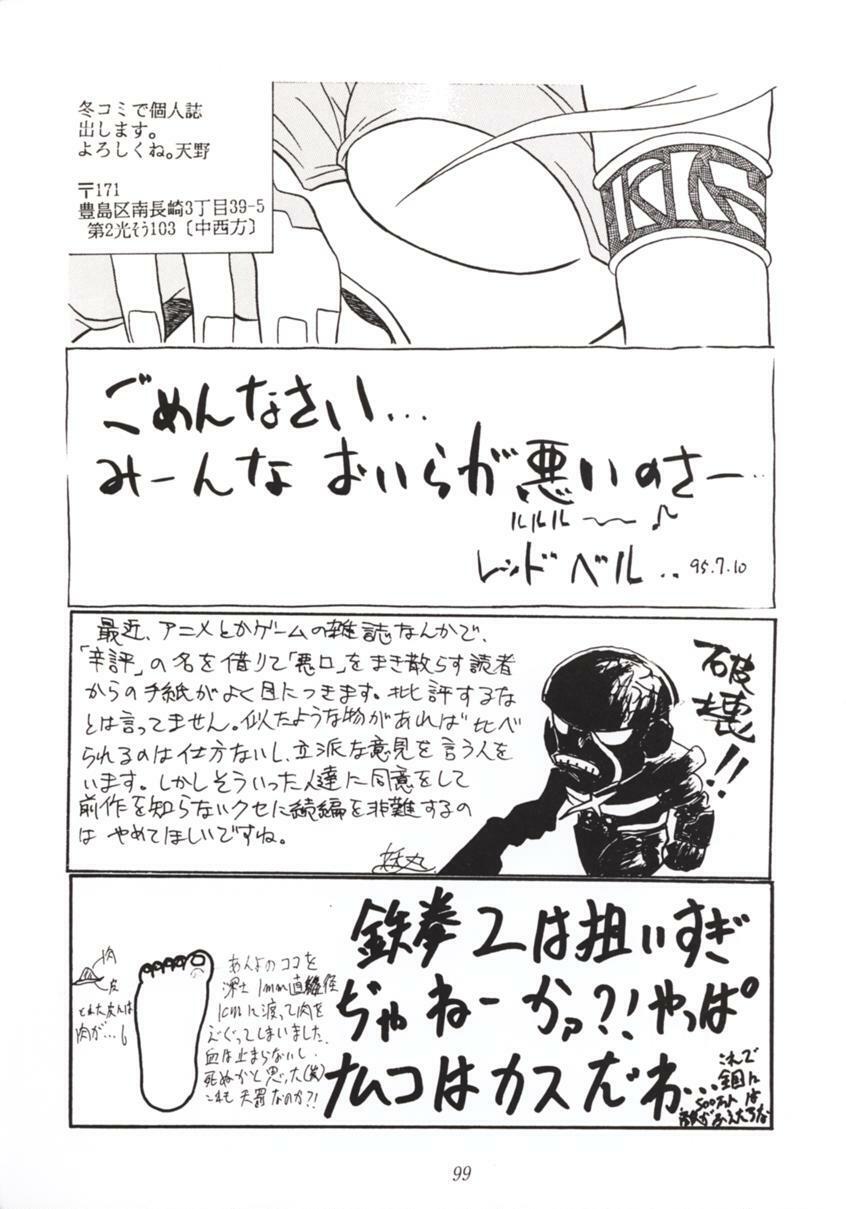 冬コミで個人誌
出します。
よろしくね。天野
〒171
豊島区南長崎3丁目39-5
第2光そう103〔中西方〕
ごめんなさい…
みーんな おいらが悪いのさー…
ルルル〜〜♪
レッドベル.. 95.7.10
最近、アニメとかゲームの雑誌なんかで、
「辛評」の名を借りて「悪口」をまき散らす読者
からの手紙がよく目につきます。批評するな
とは言ってません。似たような物があれば比べ
られるのは仕方ないし、立派な意見を言う人も
います。しかしそういった人達に同意をして
前作を知らないクセに続編を非難するの
は やめてほしいですね。
妖丸
破壊!!
鉄拳2は狙いすぎ
ぢゃねーかァ?!やっぱ
ナムコはカスだわ…
これで
全国に
500万人は
敵がふえたろな
あんよのココを
深さ1mm直径
1cmに渡って肉を
えぐってしまいました
血は止まらないし、
死ぬかと思った(笑)
これも天罰なのか?!
肉
皮
とれた皮には
肉が…
99